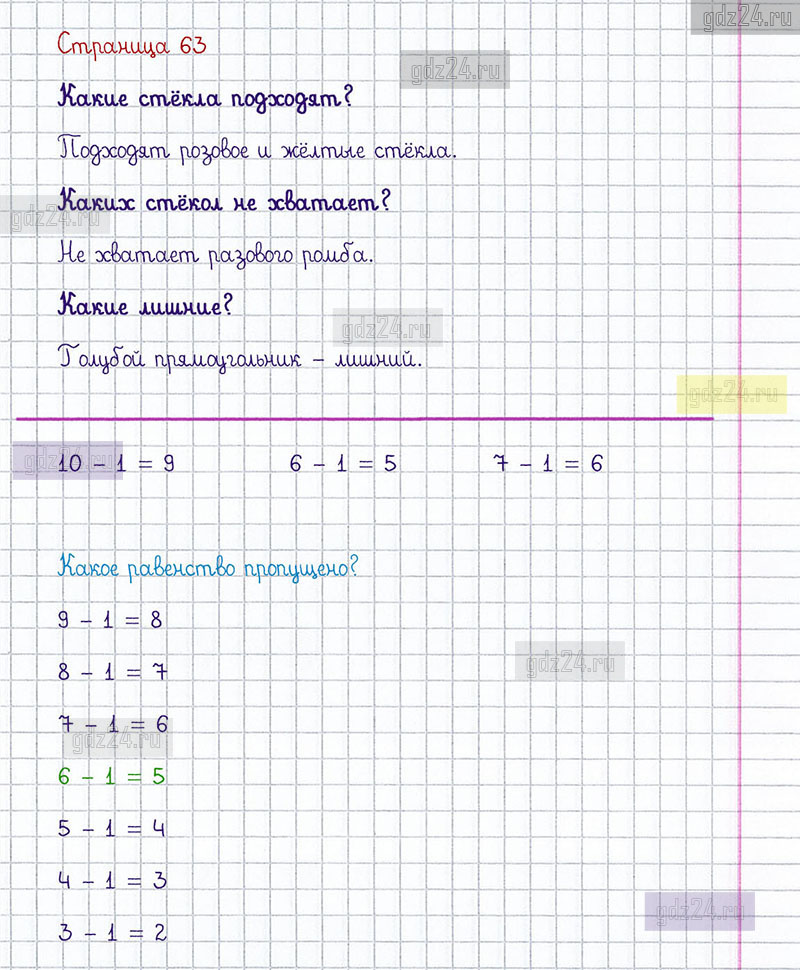 gdz24.ru
Страница 63
gdz24.ru
Какие стёкла подходят?
Подходят розовое и жёлтые стёкла.
Каких стёкол не хватает?
gdz24.ru
Не хватает разового ромба.
Какие лишние?
gdz24.ru
Голубой прямоугольник – лишний.
gdz24.ru
gdz24.ru
10 – 1 = 9 6 – 1 = 5 7 – 1 = 6
Какое равенство пропущено?
9 – 1 = 8
gdz24.ru
8 – 1 = 7
7 – 1 = 6
gdz24.ru
6 – 1 = 5
5 – 1 = 4
4 – 1 = 3
gdz24.ru
3 – 1 = 2